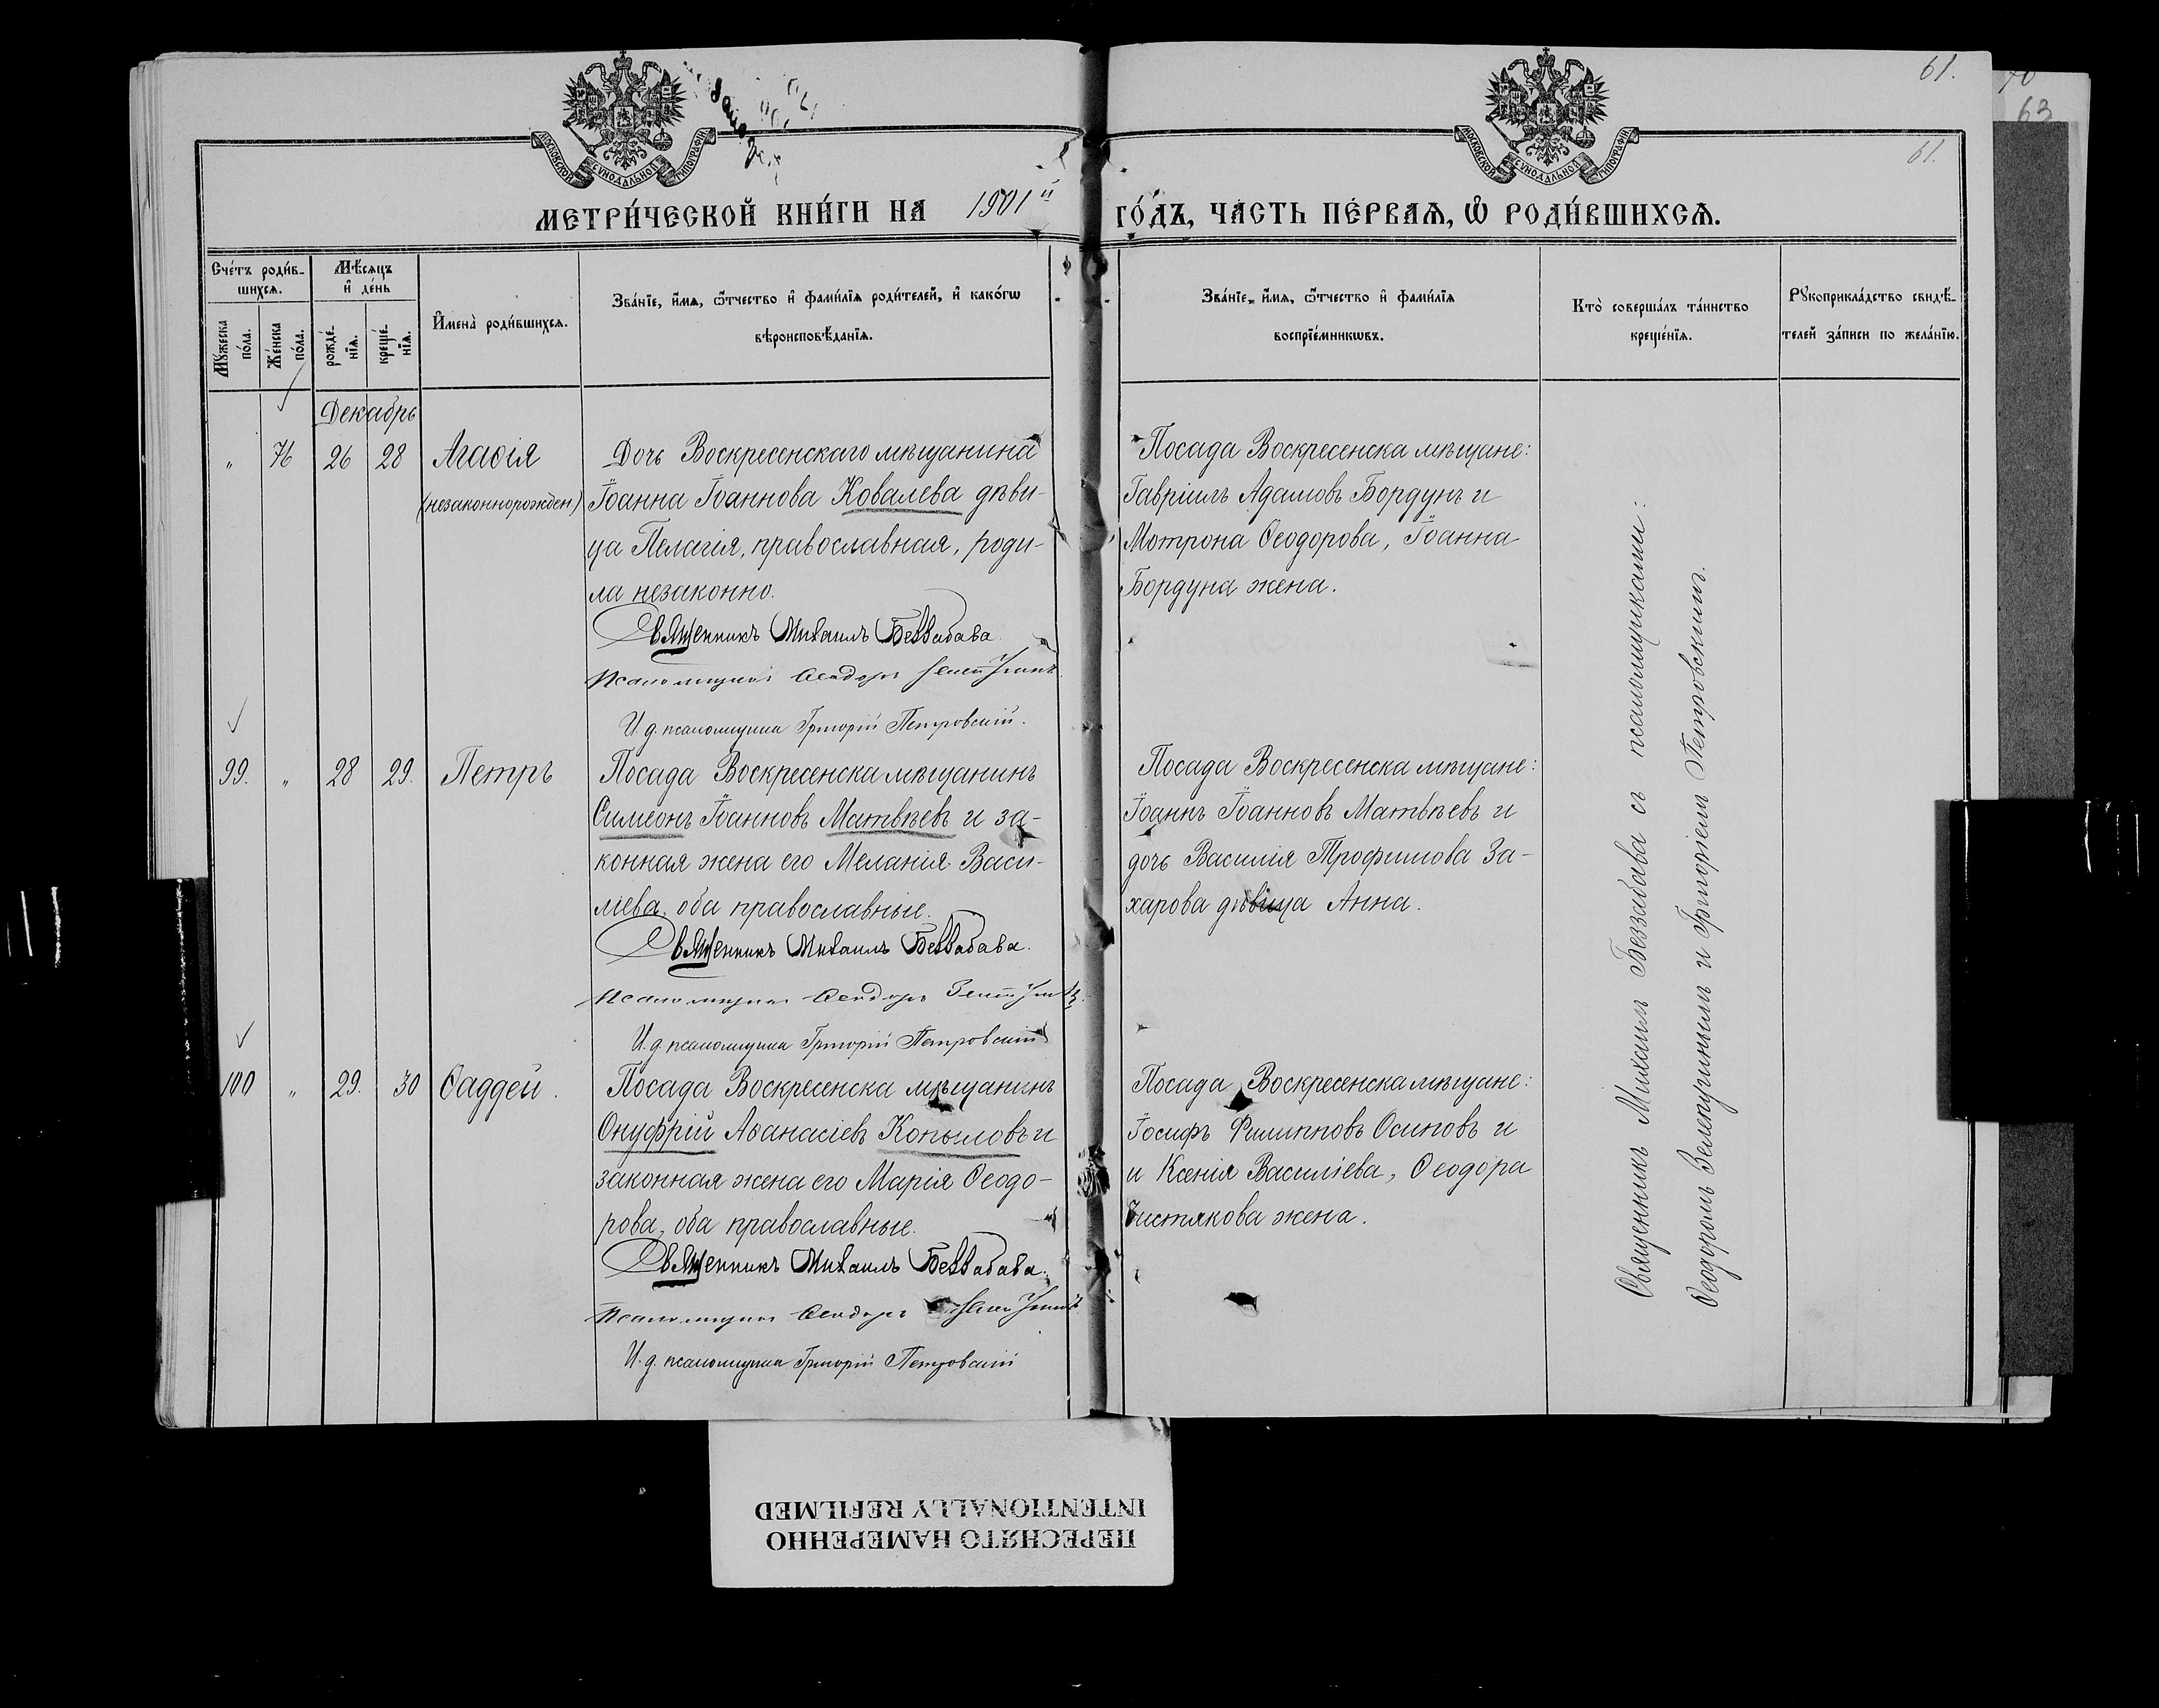 61.
70
63
61.
МОСКОВСКОЙ СѴНОДАЛЬНОЙ ТИПОГРАФІИ
МОСКОВСКОЙ СѴНОДАЛЬНОЙ ТИПОГРАФІИ
МЕТРИ́ЧЕСКОЙ КНИ́ГИ НА 1901й ГО́ДЪ, ЧА́СТЬ ПЕ́РВАѦ, Ѽ РОДИ́ВШИХСѦ.
Сче́тъ роди́в-
шихсѧ.
Мꙋ́жеска по́ла.
Же́нска по́ла.
Мѣ́сѧцъ
и҆ де́нь
рожде́-
нїѧ.
креще́-
нїѧ.
И҆мена̀ роди́вшихсѧ.
Зва́нїе, и҆́мѧ, ѻ҆́тчество и҆ фами́лїѧ роди́телей, и҆ како́гѡ
вѣроисповѣ́данїѧ.
Зва́нїе, и҆́мѧ, ѻ҆́тчество и҆ фами́лїѧ
воспрїе́мникѡвъ.
Кто̀ соверша́лъ та́инство
креще́нїѧ.
Рꙋкоприкла́дство свидѣ́-
телей за́писи по жела́нїю.
Декабрь
" 76 26 28 Агаѳія
(незаконнорожден)
Дочь Воскресенскаго мѣщанина
Іоанна Іоаннова Ковалева дѣви-
ца Пелагія, православная, роди-
ла незаконно.
Священникъ Михаилъ Беззабава.
Псаломщикъ Ѳеодоръ
И. д. псаломщика Григорій Петровскій.
Посада Воскресенска мѣщане:
Гавріилъ Адамовъ Бордунъ и
Мотрона Ѳеодорова, Іоанна
Бордуна жена.
99. " 28 29. Петръ
Посада Воскресенска мѣщанинъ
Симеонъ Іоанновъ Матвѣевъ и за-
конная жена его Меланія Васи-
лiева, оба православные.
Священникъ Михаилъ Беззабава.
Псаломщикъ Ѳеодоръ
И. д. псаломщика Григорій Петровскій
Посада Воскресенска мѣщане:
Іоаннъ Іоанновъ Матвѣевъ и
дочь Василія Трофимова За-
харова дѣвица Анна.
100 " 29. 30 Ѳаддей.
Посада Воскресенска мѣщанинъ
Онуфрій Аѳанасіевъ Копыловъ и
законная жена его Марія Ѳеодо-
рова, оба православные.
Священникъ Михаилъ Беззабава.
Псаломщикъ Ѳеодоръ
И. д. псаломщика Григорій Петровскій
Посада Воскресенска мѣщане:
Іосифъ Филипповъ Осиповъ и
и Ксенія Василіева, Ѳеодора
Чистякова жена.
Священникъ Михаилъ Беззабава съ псаломщиками:
Ѳеодоромъ Зелепугинымъ и Григоріемъ Петровскимъ.
ПЕРЕСНЯТО НАМЕРЕННО
INTENTIONALLY REFILMED